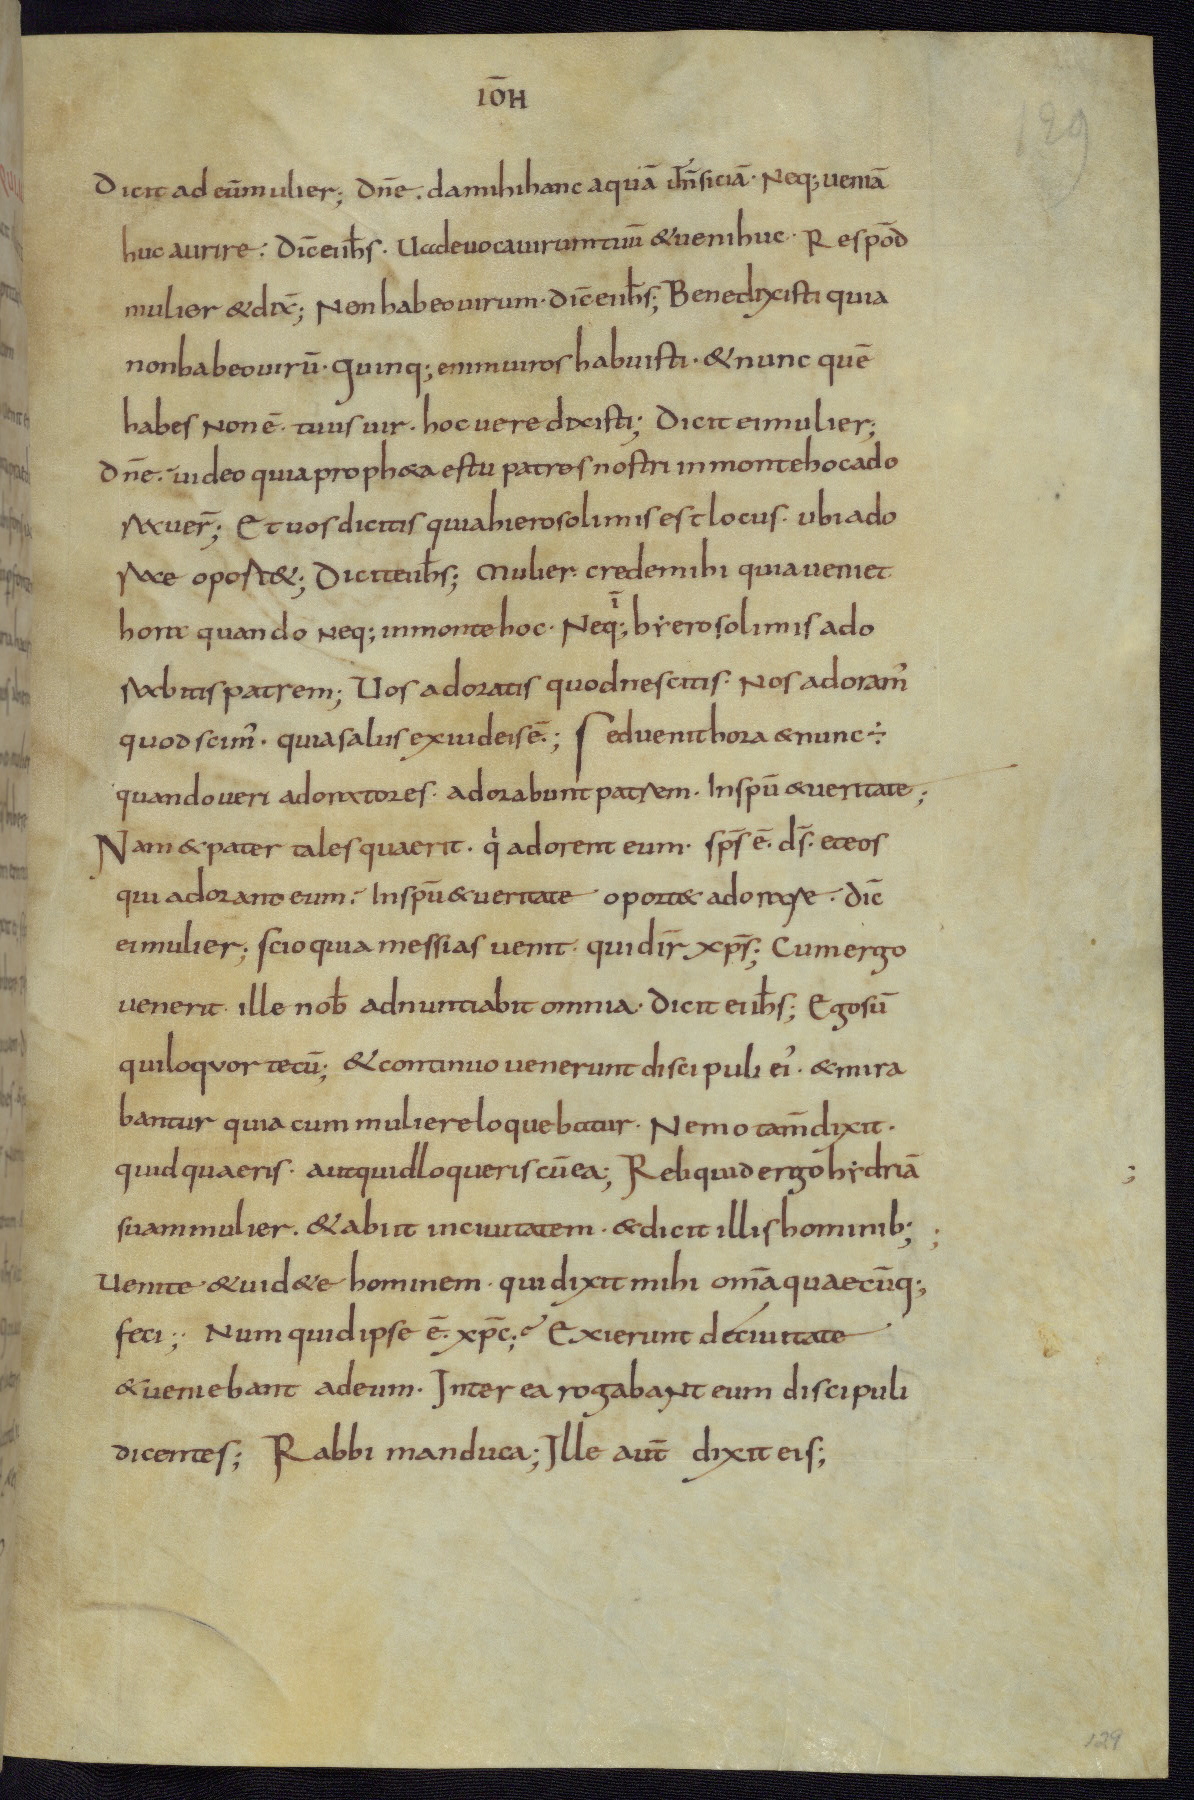 IŌH
129
Dicit ad eū mulier; Dn̄e. da mihi hanc aquā ut n̄ siciā. Neq; veniā
huc aurire: Dic̄ ei ih̄s. Uade voca virum tuū & veni huc. Respōd
mulier & dix̄; Non habeo virum. dic̄ ei ih̄s; Bene dixisti quia
non habeo virū. quinq; enim viros habuisti. & nunc quē
habes non ē. tuus vir. hoc vere dixisti; Dicit ei mulier;
Dn̄e. video quia proph&a es tu patres nostri in monte hoc ado
raver̄; Et vos dicitis quia hierosolimis est locus. ubi ado
rare oport&; Dicit ei ih̄s; Mulier: crede mihi quia veniet
hora quando neq; in monte hoc. Neq; ī hẏerosolimis ado
rabitis patrem; Vos adoratis quod nescitis. Nos adoram᾿
quod scim᾿. quia salus ex iudeis ē.; Sed venit hora & nunc ÷
quando veri adoratores. adorabunt patrem. In sp̄u & veritate;
Nam & pater tales quaerit. qⁱ adorent eum. sp̄s ē. d̄s. et eos
qui adorant eum. In sp̄u & veritate oport& adorare. dic̄
ei mulier; scio quia messias venit. qui dīr xp̄s; Cum ergo
venerit ille nob̄ adnuntiabit omnia. Dicit ei ih̄s; Ego sū
qui loquor tecū; & continuo venerunt discipuli ei᾿. & mira
bantur quia cum muliere loquebatur. Nemo tam̄ dixit.
quid quaeris. aut quid loqueris cū ea; Reliquid ergo hẏdriā
suam mulier. & abiit in civitatem. & dicit illis hominib;
;
;
Venite & vid&e hominem. qui dixit mihi om̄a quaecūq;
feci; Num quid ipse ē. xp̄c; Exierunt de civitate
& veniebant ad eum. Inter ea rogabant eum discipuli
dicentes; Rabbi manduca; Ille aut̄ dixit eis;
129